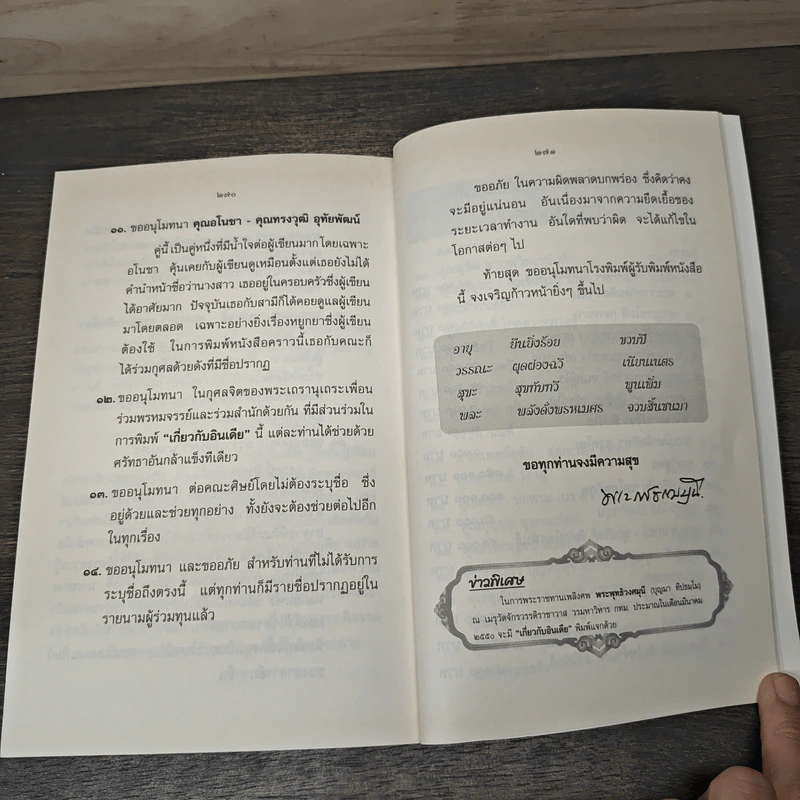 ๒๗๐
๑๑. ขออนุโมทนา คุณอโนชา - คุณทรงวุฒิ อุทัยพัฒน์
คู่นี้ เป็นคู่หนึ่งที่มีน้ำใจต่อผู้เขียนมาก โดยเฉพาะ
อโนชา คุ้นเคยกับผู้เขียนดูเหมือนตั้งแต่เธอยังไม่ได้
คำนำหน้าชื่อว่านางสาว เธออยู่ในครอบครัวซึ่งผู้เขียน
ได้อาศัยมาก ปัจจุบันเธอกับสามีก็ได้คอยดูแลผู้เขียน
มาโดยตลอด เฉพาะอย่างยิ่งเรื่องหยูกยาซึ่งผู้เขียน
ต้องใช้ ในการพิมพ์หนังสือคราวนี้เธอกับคณะก็
ได้ร่วมกุศลด้วยดังที่มีชื่อปรากฏ
๑๒. ขออนุโมทนา ในกุศลจิตของพระเถรานุเถระเพื่อน
ร่วมพรหมจรรย์และร่วมสำนักด้วยกัน ที่มีส่วนร่วมใน
การพิมพ์ “เกี่ยวกับอินเดีย” นี้ แต่ละท่านได้ช่วยด้วย
ศรัทธาอันกล้าแข็งทีเดียว
๑๓. ขออนุโมทนา ต่อคณะศิษย์โดยไม่ต้องระบุชื่อ ซึ่ง
อยู่ด้วยและช่วยทุกอย่าง ทั้งยังจะต้องช่วยต่อไปอีก
ในทุกเรื่อง
๑๔. ขออนุโมทนา และขออภัย สำหรับท่านที่ไม่ได้รับการ
ระบุชื่อถึงตรงนี้ แต่ทุกท่านก็มีรายชื่อปรากฏอยู่ใน
รายนามผู้ร่วมทุนแล้ว
๒๗๑
ขออภัย ในความผิดพลาดบกพร่อง ซึ่งคิดว่าคง
จะมีอยู่แน่นอน อันเนื่องมาจากความยืดเยื้อของ
ระยะเวลาทำงาน อันใดที่พบว่าผิด จะได้แก้ไขใน
โอกาสต่อๆ ไป
ท้ายสุด ขออนุโมทนาโรงพิมพ์ผู้รับพิมพ์หนังสือ
นี้ จงเจริญก้าวหน้ายิ่งๆ ขึ้นไป
อายุ ยืนยิ่งร้อย ขวบปี
วรรณะ ผุดผ่องฉวี เนียนเนตร
สุขะ สุขทับทวี พูนเพิ่ม
พละ พลังดั่งพรหเมศร จวบสิ้นชนมา
ขอทุกท่านจงมีความสุข
ข่าวพิเศษ
ในการพระราชทานเพลิงศพ พระพุทธิวงศมุนี (บุญมา ทีปธมฺโม)
ณ เมรุวัดจักรวรรดิราชาวาส วรมหาวิหาร กทม. ประมาณในเดือนมีนาคม
๒๕๕๐ จะมี “เกี่ยวกับอินเดีย” พิมพ์แจกด้วย